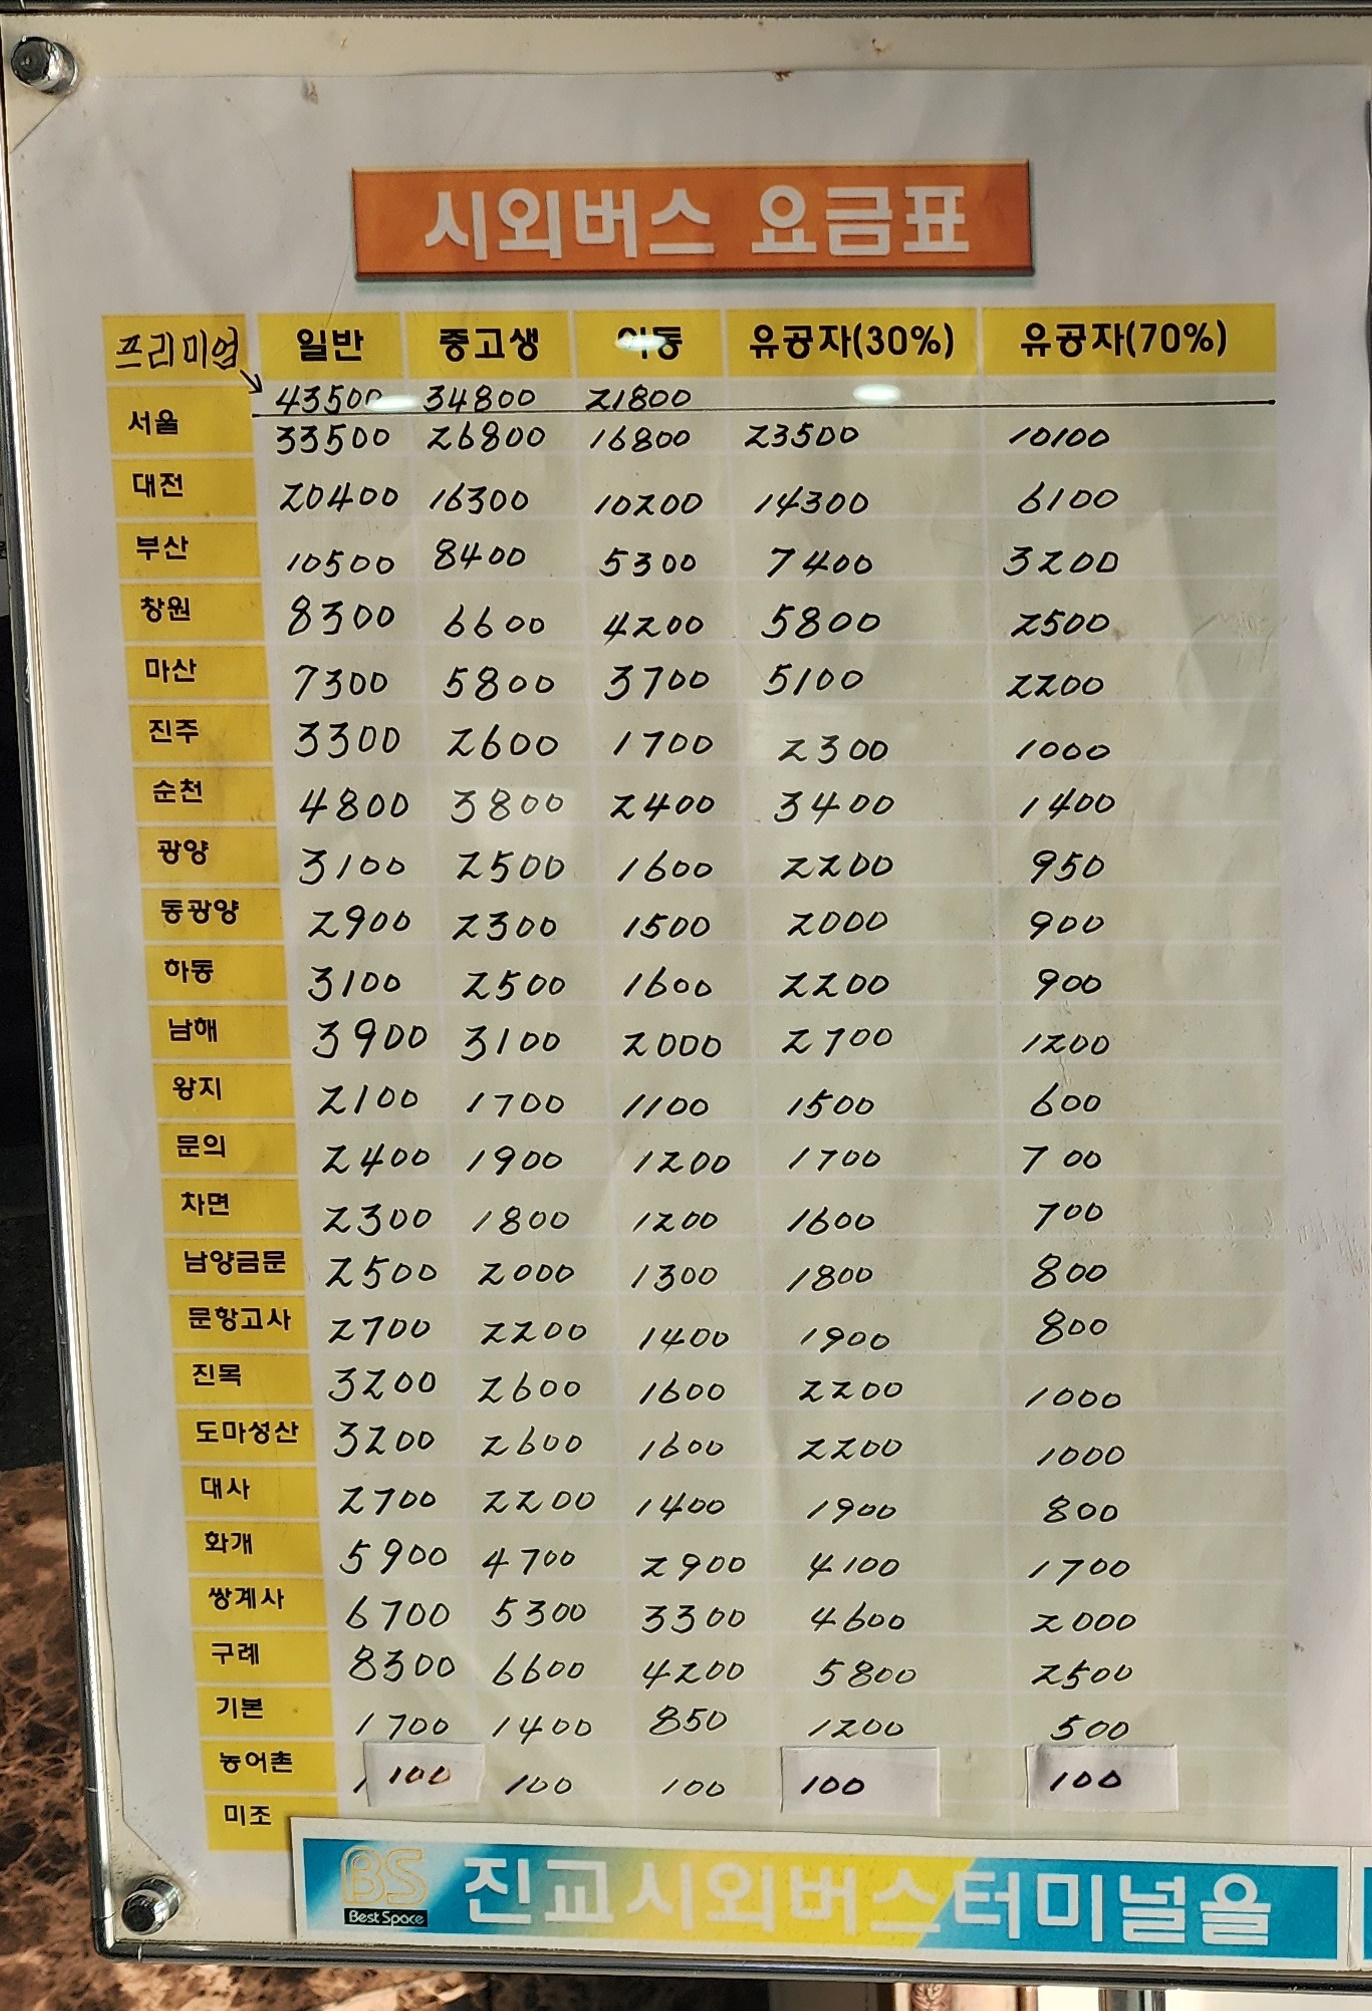 시외버스 요금표
프리미엄 일반 중고생 아동 유공자(30%) 유공자(70%)
43500 34800 21800
서울 33500 26800 16800 23500 10100
대전 20400 16300 10200 14300 6100
부산 10500 8400 5300 7400 3200
창원 8300 6600 4200 5800 2500
마산 7300 5800 3700 5100 2200
진주 3300 2600 1700 2300 1000
순천 4800 3800 2400 3400 1400
광양 3100 2500 1600 2200 950
동광양 2900 2300 1500 2000 900
하동 3100 2500 1600 2200 900
남해 3900 3100 2000 2700 1200
왕지 2100 1700 1100 1500 600
문의 2400 1900 1200 1700 700
차면 2300 1800 1200 1600 700
남양금문 2500 2000 1300 1800 800
문항고사 2700 2200 1400 1900 800
진목 3200 2600 1600 2200 1000
도마성산 3200 2600 1600 2200 1000
대사 2700 2200 1400 1900 800
화개 5900 4700 2900 4100 1700
쌍계사 6700 5300 3300 4600 2000
구례 8300 6600 4200 5800 2500
기본 1700 1400 850 1200 500
농어촌 100 100 100 100 100
미조
BS Best Space 진교시외버스터미널을